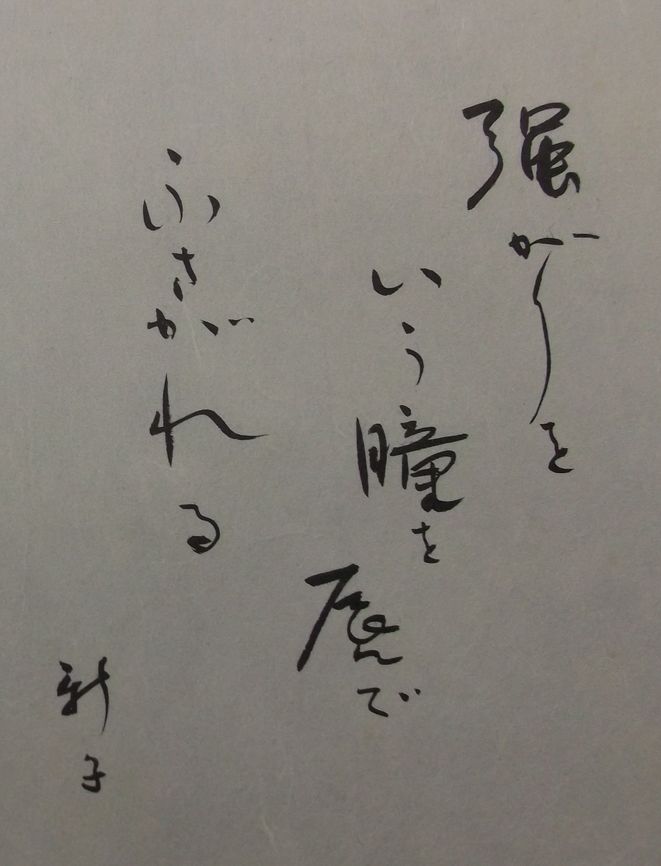 強がりを
いう瞳を唇で
ふさがれる
新子